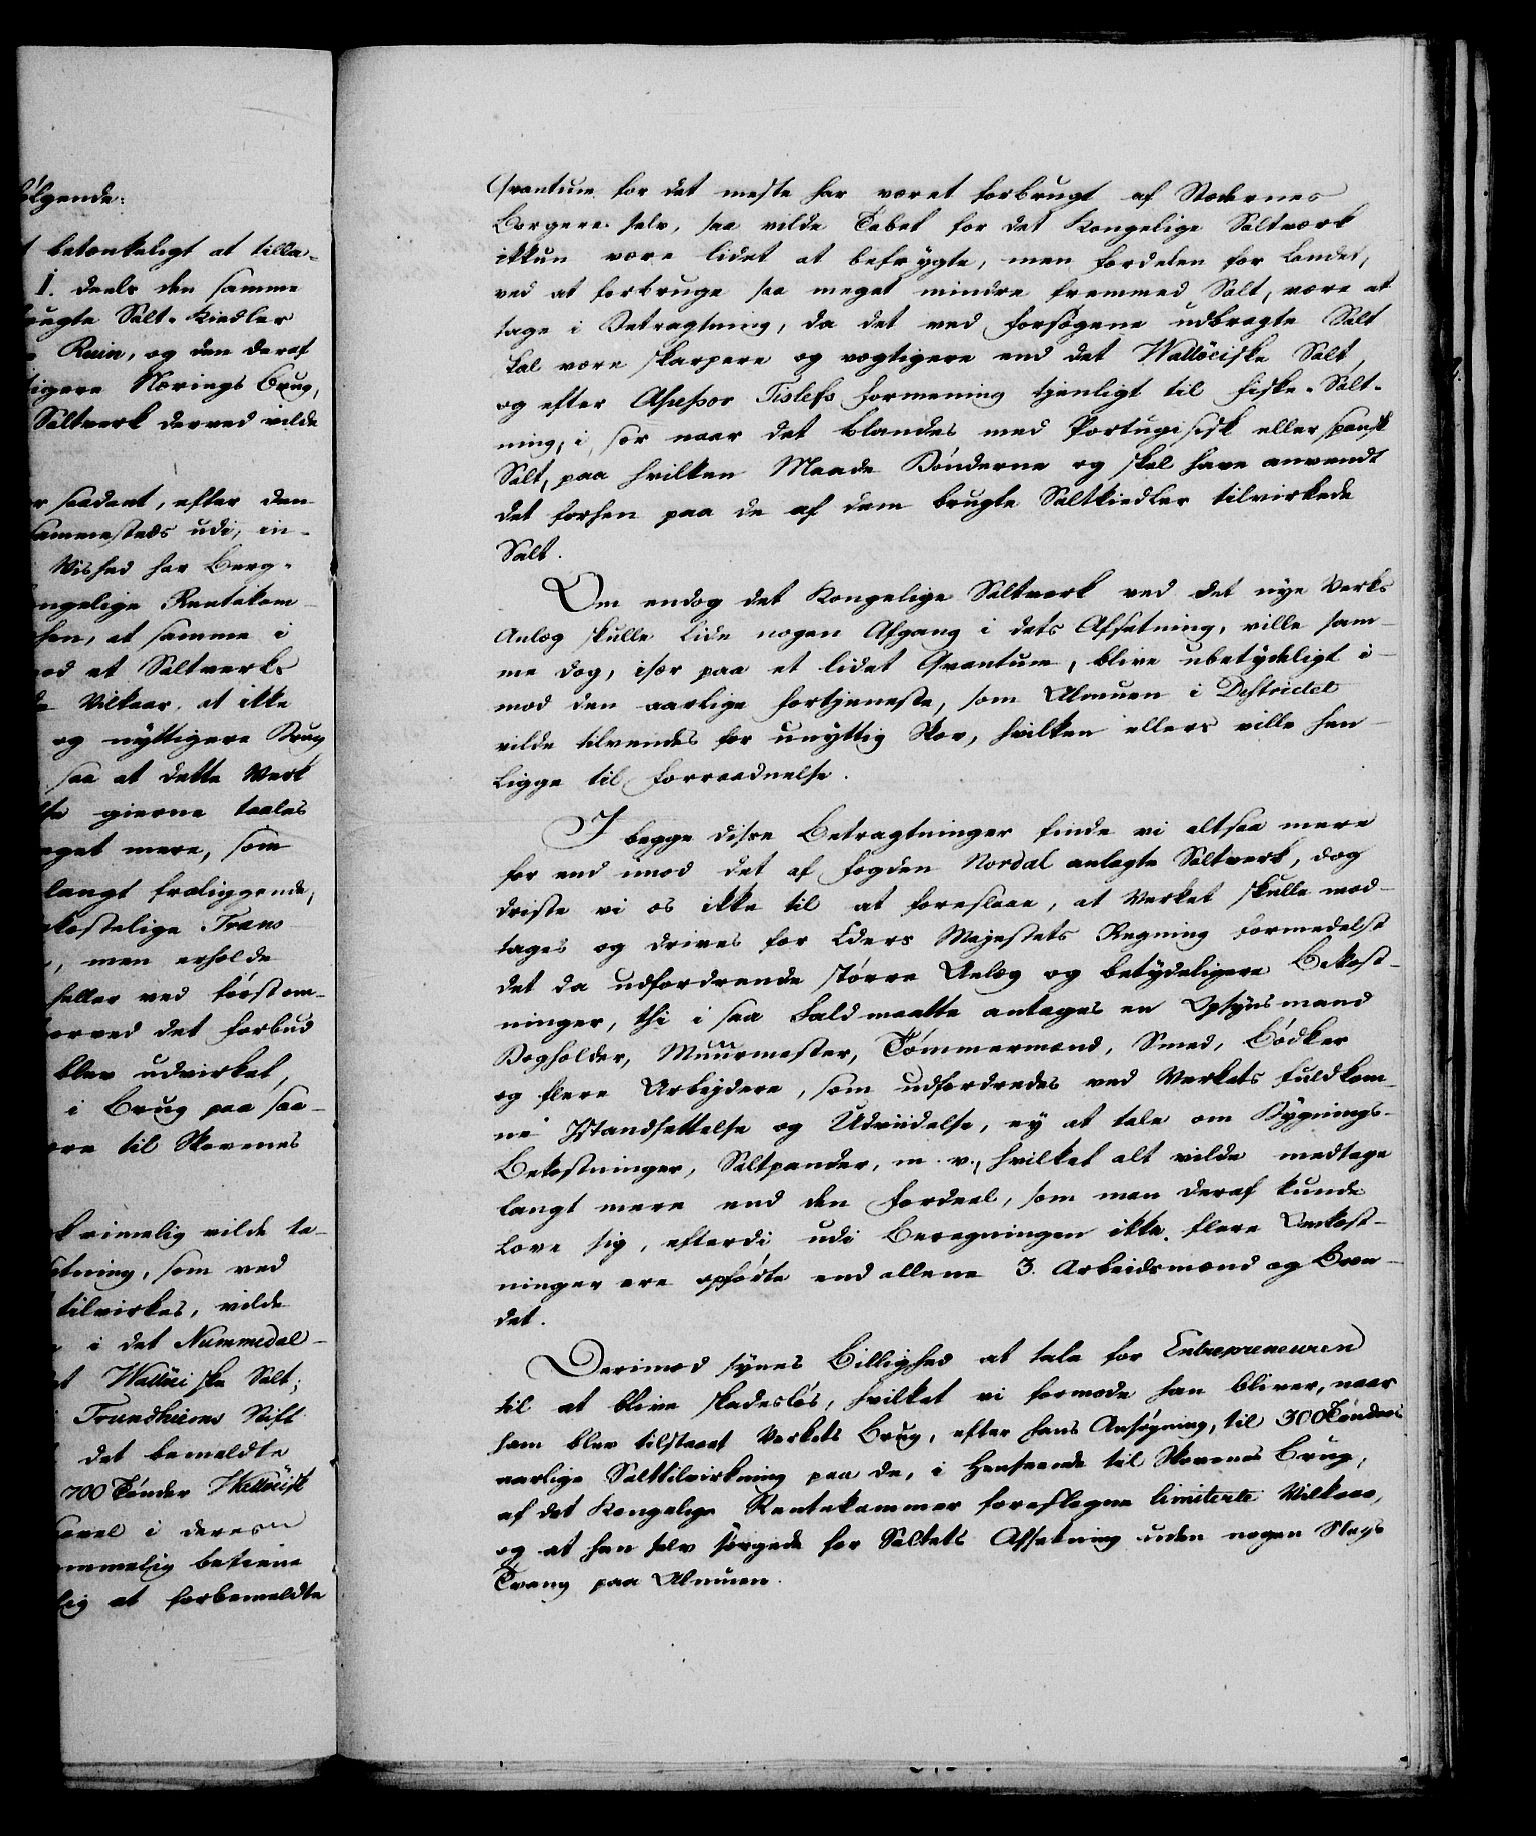 ølgende:
t betænkeligt at tilla-
1. deels den samme
brugte Salt-Kiedler
Ruin, og den deraf
tigere Nærings Brug,
Saltverk derved vilde
r saadant, efter den
sammesteds udi, in-
Vished har Berg-
ongelige Rentekam-
hen, at samme i
mod et Saltverks
Vilkaar, at ikke
og nyttigere Brug
saa at dette Verk
gierne taales
eget mere, som
langt fraliggende,
kostelige Trans-
, men erholde
heller ved førstom-
hvorved det Forbud
blev udvirket,
i Brug paa saa-
ære til Skovenes
k rimelig vilde ta-
sætning, som ved
tilvirkes, vilde
i det Nummedal-
t Wallöeiske Salt;
Trundhiems Stift
det bemeldte
700 Tønder Walløeisk
savel i deres
ommelig betiene
lig at forbemeldte
Qvantum for det meste har været forbrugt af Stædernes
Borgere selv, saa vilde Tabet for det Kongelige Saltværk
ikkun være lidet at befrygte, men Fordelen for Landet,
ved at forbruge saa meget mindre fremmed Salt, være at
tage i Betragtning, da det ved Forsøgene udbragte Salt
skal være skarpere og vægtigere end det Wallöeiske Salt,
og efter Assessor Tislefs Formening tjenligt til Fiske-Salt-
ning, i sær naar det blandes med Portugisisk eller spansk
Salt, paa hvilken Maade Bønderne og skal have anvendt
det forhen paa de af dem brugte Saltkiedler tilvirkede
Salt.
Om endog det Kongelige Saltværk ved det nye Verks
Anlæg skulle lide nogen Afgang i dets Afsætning, ville sam-
me dog, især paa et lidet Qvantum, blive ubetydeligt i-
mod den aarlige Fortjeneste, som Almuen i Destrictet
vilde tilvendes for unyttig Skov, hvilken ellers ville hen-
ligge til Forraadnelse.
I begge disse Betragtninger finde vi altsaa mere
for end imod det af Fogden Nordal anlagte Saltverk, dog
driste vi os ikke til at foreslaae, at Verket skulle mod-
tages og drives for Eders Majestets Regning formedelst
det da udfordrende større Anlæg og betydeligere Bekost-
ninger, thi i saa Fald maatte antages en Opsynsmand
Bogholder, Muurmester, Tømmermænd, Smed, Bødker
og flere Arbejdere, som udfordredes ved Verkets fuldkom-
ne Istandsettelse og Udviidelse, ey at tale om Bygnings-
Bekostninger, Saltpander, m. v., hvilket alt vilde medtage
langt mere end den Fordeel, som man deraf kunde
love sig, efterdi udi Beregningen ikke flere Omkost-
ninger ere opførte end allene 3. Arbeidsmænd og Bræn-
det.
Derimod synes Billighed at tale for Entrepreneuren
til at blive skadesløs, hvilket vi formode han bliver, naar
ham blev tilstaaet Verkets Brug, efter hans Ansøgning, til 300 Tønders
aarlige Salttilvirkning paa de, i Henseende til Skovenes Brug,
af det Kongelige Rentekammer foreslagne limiterte Vilkaar,
og at han selv sørgede for Saltets Afsætning uden nogen Slags
Tvang paa Almuen.